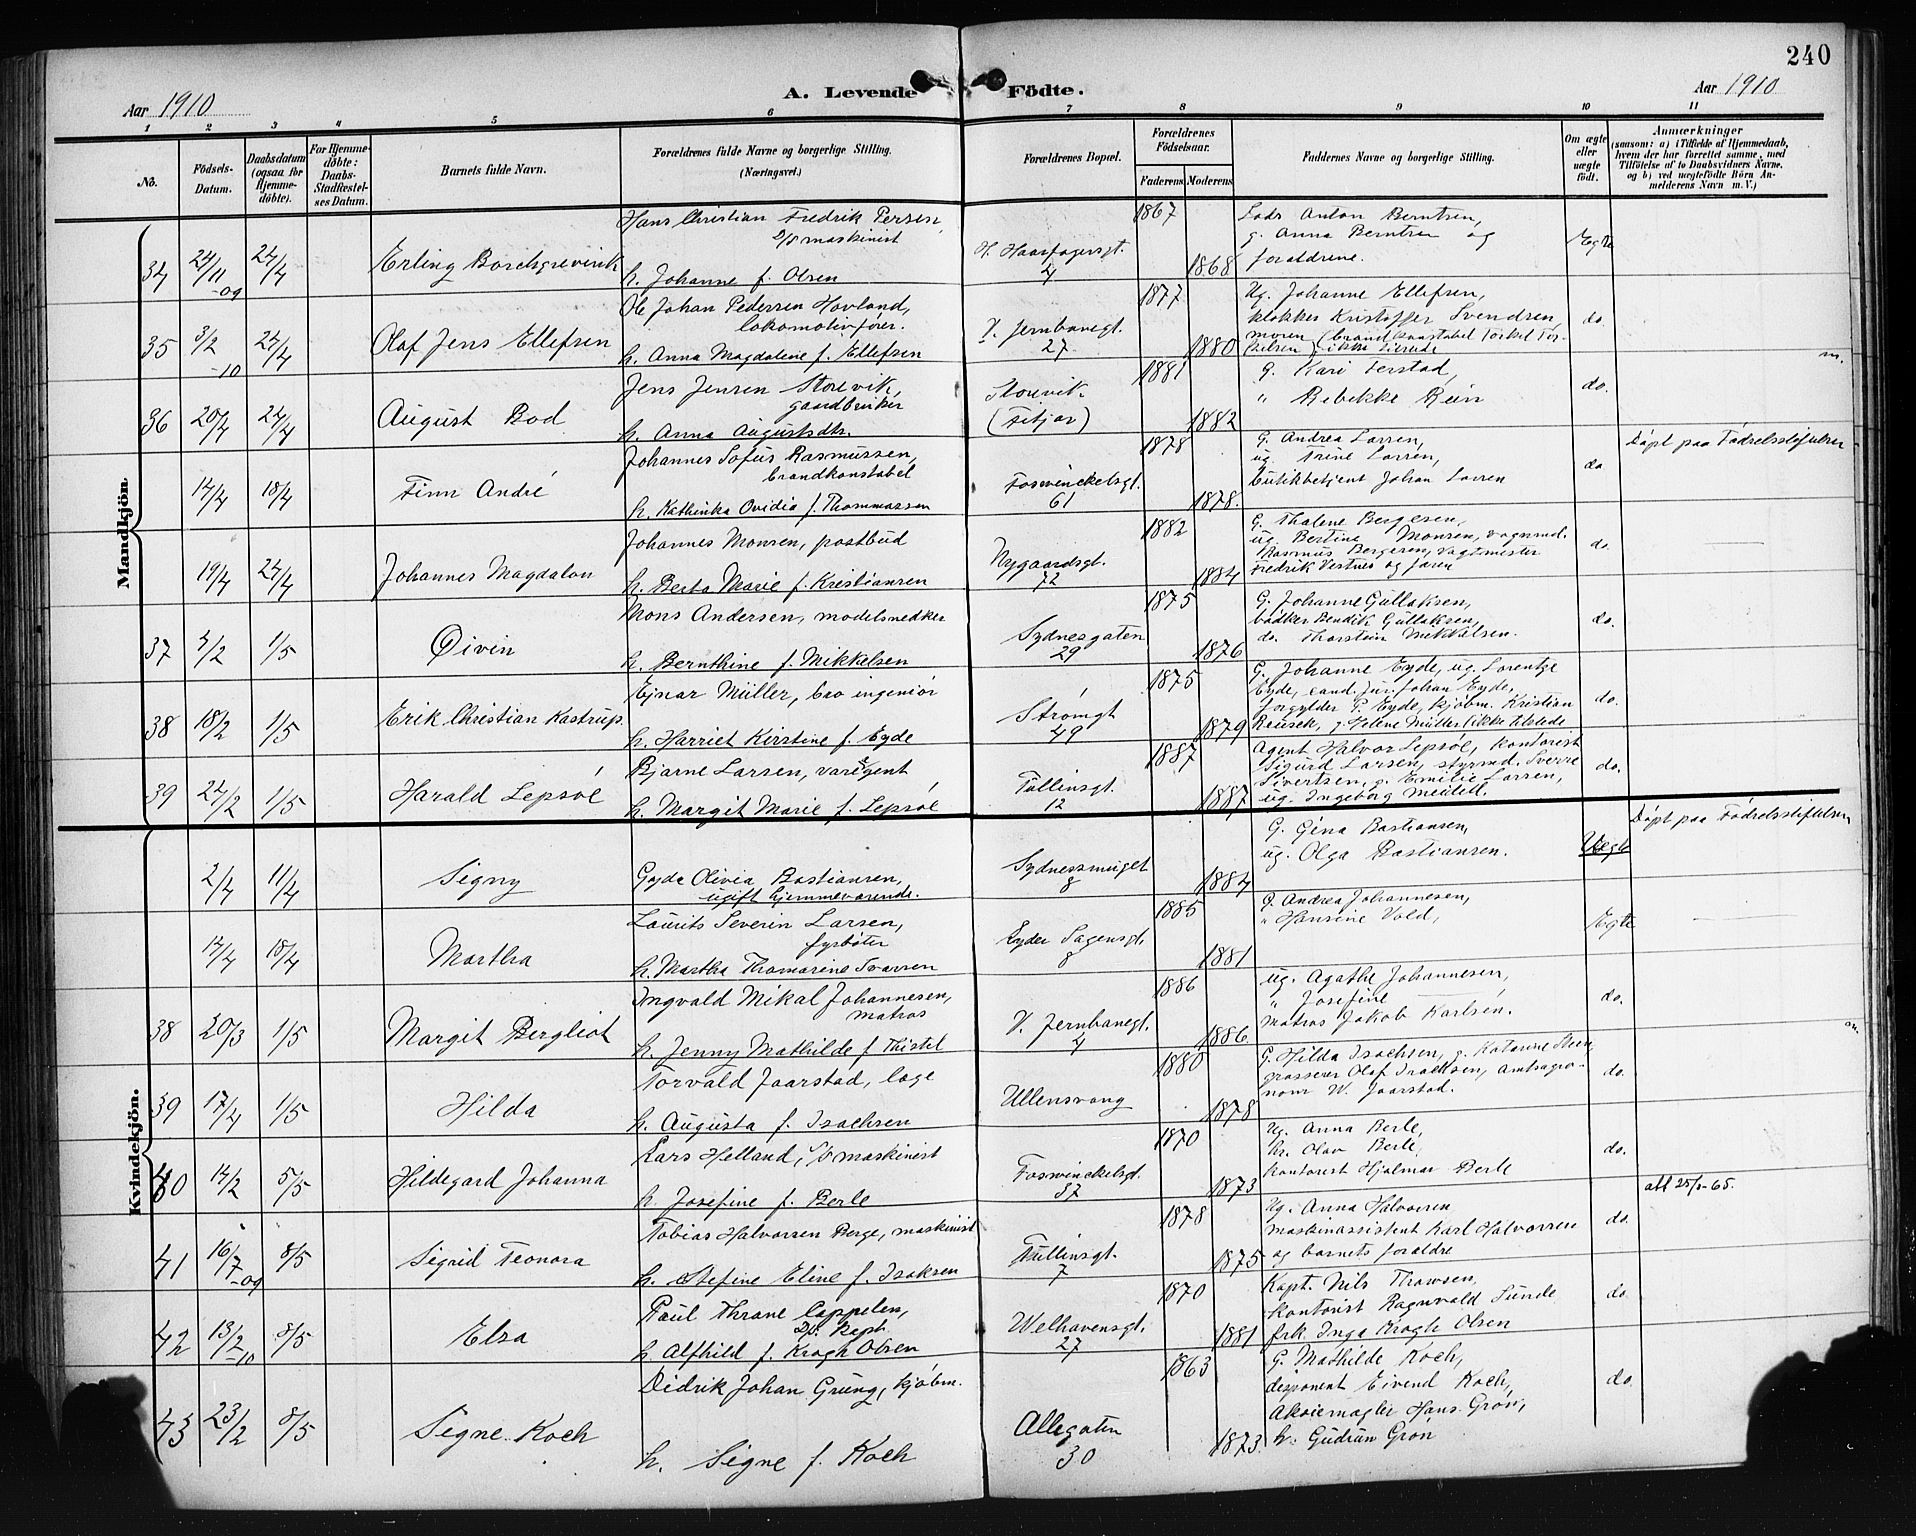 240
Aar 1910
A. Levende Födte.
Aar 1910
1 2 3 4 5 6 7 8 9 10 11
No.
Födsels-Datum.
Daabsdatum (ogsaa for Hjemmedöbte).
For Hjemmedöbte: Daabs-Stadfæstelses Datum.
Barnets fulde Navn.
Forældrenes fulde Navne og borgerlige Stilling.
(Næringsvei.)
Forældrenes Bopæl.
Forældrenes Födselsaar.
Faderens. Moderens.
Faddernes Navne og borgerlige Stilling.
Om ægte eller uægte födt.
Anmærkninger
(saasom: a) i Tilfælde af Hjemmedaab, hvem der har forrettet samme, med Tilföielse af to Daabsvidners Navne, og b) ved uægtefödte Börn Anmelderens Navn m. V.)
Mandkjön.
34 24/11 -09 24/4 Erling Borchgrevink
Hans Christian Fredrik Persen,
D/S maskinist
h. Johanne f. Olsen
H. Haarfagersgt. 4
1867 1868
Lods Anton Berntsen,
g. Anna Berntsen og
forældrene.
Ægte
35 3/2 -10 24/4 Olaf Jens Ellefsen
Ole Johan Pedersen Hovland,
lokomotivfører.
h. Anna Magdalene f. Ellefsen
V. Jernbanegt. 27
1877 1880
Ug. Johanne Ellefsen,
klokker Kristoffer Svendsen,
do.
36 20/4 24/4 August Bod
Jens Jensen Storevik,
gaardbruker
h. Anna Augustsdtr.
Storevik (Fitjar)
1881 1882
G. Kari Ferstad,
" Rebekke Rein
do.
14/4 18/4 Finn André
Johannes Sofus Rasmussen,
brandkonstabel
h. Kathinka Ovidia f. Thommassen
Fosswinckelsgt. 61
1878 1878.
G. Andrea Larsen,
ug. Trine Larsen,
butikbetjent Johan Larsen
do
Døpt paa Fødselsstiftelsen
19/4 24/4 Johannes Magdalon
Johannes Monsen, postbud
h. Berta Marie f. Kristiansen
Nygaardsgt. 72
1882 1884
G. Thalene Bergesen,
ug. Bertine Monsen, vognmd.
Rasmus Bergesen, vagtmester
Fredrik Vestnes og faren
do.
37 4/2 1/5 Øivin
Mons Andersen, modelsnedker
h. Bernthine f. Mikkelsen
Sydnesgaten 29
1875 1876
G. Johanne Gullaksen,
bødker Bendik Gullaksen,
do. Thorstein Mikkelsen.
do.
38 18/2 1/5 Erik Christian Kastrup.
Ejnar Müller, bro ingeniør
h. Harriet Kirstine f. Eyde
Strømgt 49
1875 1879
G. Johanne Eyde, ug. Lorentze
Eyde, cand. jur. Johan Eyde,
forgylder P. Eyde, kjøbm. Kristian
Reusch, g. Helene Müller (ikke tilstede
do.
39 24/2 1/5 Harald Lepsøe
Bjarne Larsen, vareagent
h. Margit Marie f. Lepsøe
Tullinsgt. 12
1887 1887
Agent Halvor Lepsøe, kontorist
Sigurd Larsen, styrmd. Sverre
Sivertsen, g. Emilie Larsen,
ug. Ingeborg Meidell.
do.
Kvindekjön.
2/4 11/4 Signy
Gyda Olivia Bastiansen,
ugift hjemmeværende.
Sydnessmuget 8
1884
G. Gina Bastiansen,
ug. Olga Bastiansen.
Uegte
Døpt paa Fødselsstiftelsen
14/4 18/4 Martha
Laurits Severin Larsen,
fyrbøter
h. Martha Thomarine Svarren
Eyder Sagensgt. 8
1885 1881
G. Andrea Johannesen,
" Hansine Vold,
Ægte
38 20/3 1/5 Margit Bergliot
Ingvald Mikal Johannesen,
matros
h. Jenny Mathilde f. Thistel
V. Jernbanegt. 4
1886 1886
Ug. Agathe Johannesen,
" Josefine
Matros Jakob Karlsen.
do.
39 17/4 1/5 Hilda
Torvald Jaarstad, læge
h. Augusta f. Isachsen
Ullensvang
1880 1878
G. Hilda Isachsen, g. Katarine Steen,
grosserer Olaf Isachsen, Amtsagro-
nom W. Jaarstad.
do.
40 14/2 5/5 Hildegard Johanna
Lars Helland, D/S maskinist
h. Josefine f. Berle
Fosswinckelsgt. 37
1870 1873
Ug. Anna Berle,
hr. Olav Berle,
kontorist Hjalmar Berle
do.
41 16/7 -09 8/5 Sigrid Teonora
Tobias Halvorsen Berge, maskinist
h. Stefine Eline f. Isaksen
Tullinsgt. 7
1878 1875
Ug. Anna Halvorsen
maskinassistent Karl Halvorsen
og barnets forældre
do.
42 13/2 -10 8/5 Elsa
Paul Thrane Cappelen,
D/S. Kapt.
h. Alfhild f. Krogh Olsen
Welhavensgt. 27
1870 1881
Kapt. Nils Thowsen,
kontorist Ragnvald Sunde
frk. Inga Krogh Olsen
do.
43 23/2 8/5 Signe Koch
Didrik Johan Grung, kjøbm.
h. Signe f. Koch
Allegaten 30
1863 1873.
G. Mathilde Koch,
disponent Eivend Koch,
Aksiemægler Hans Grøn,
h. Gudrun Grøn
do.